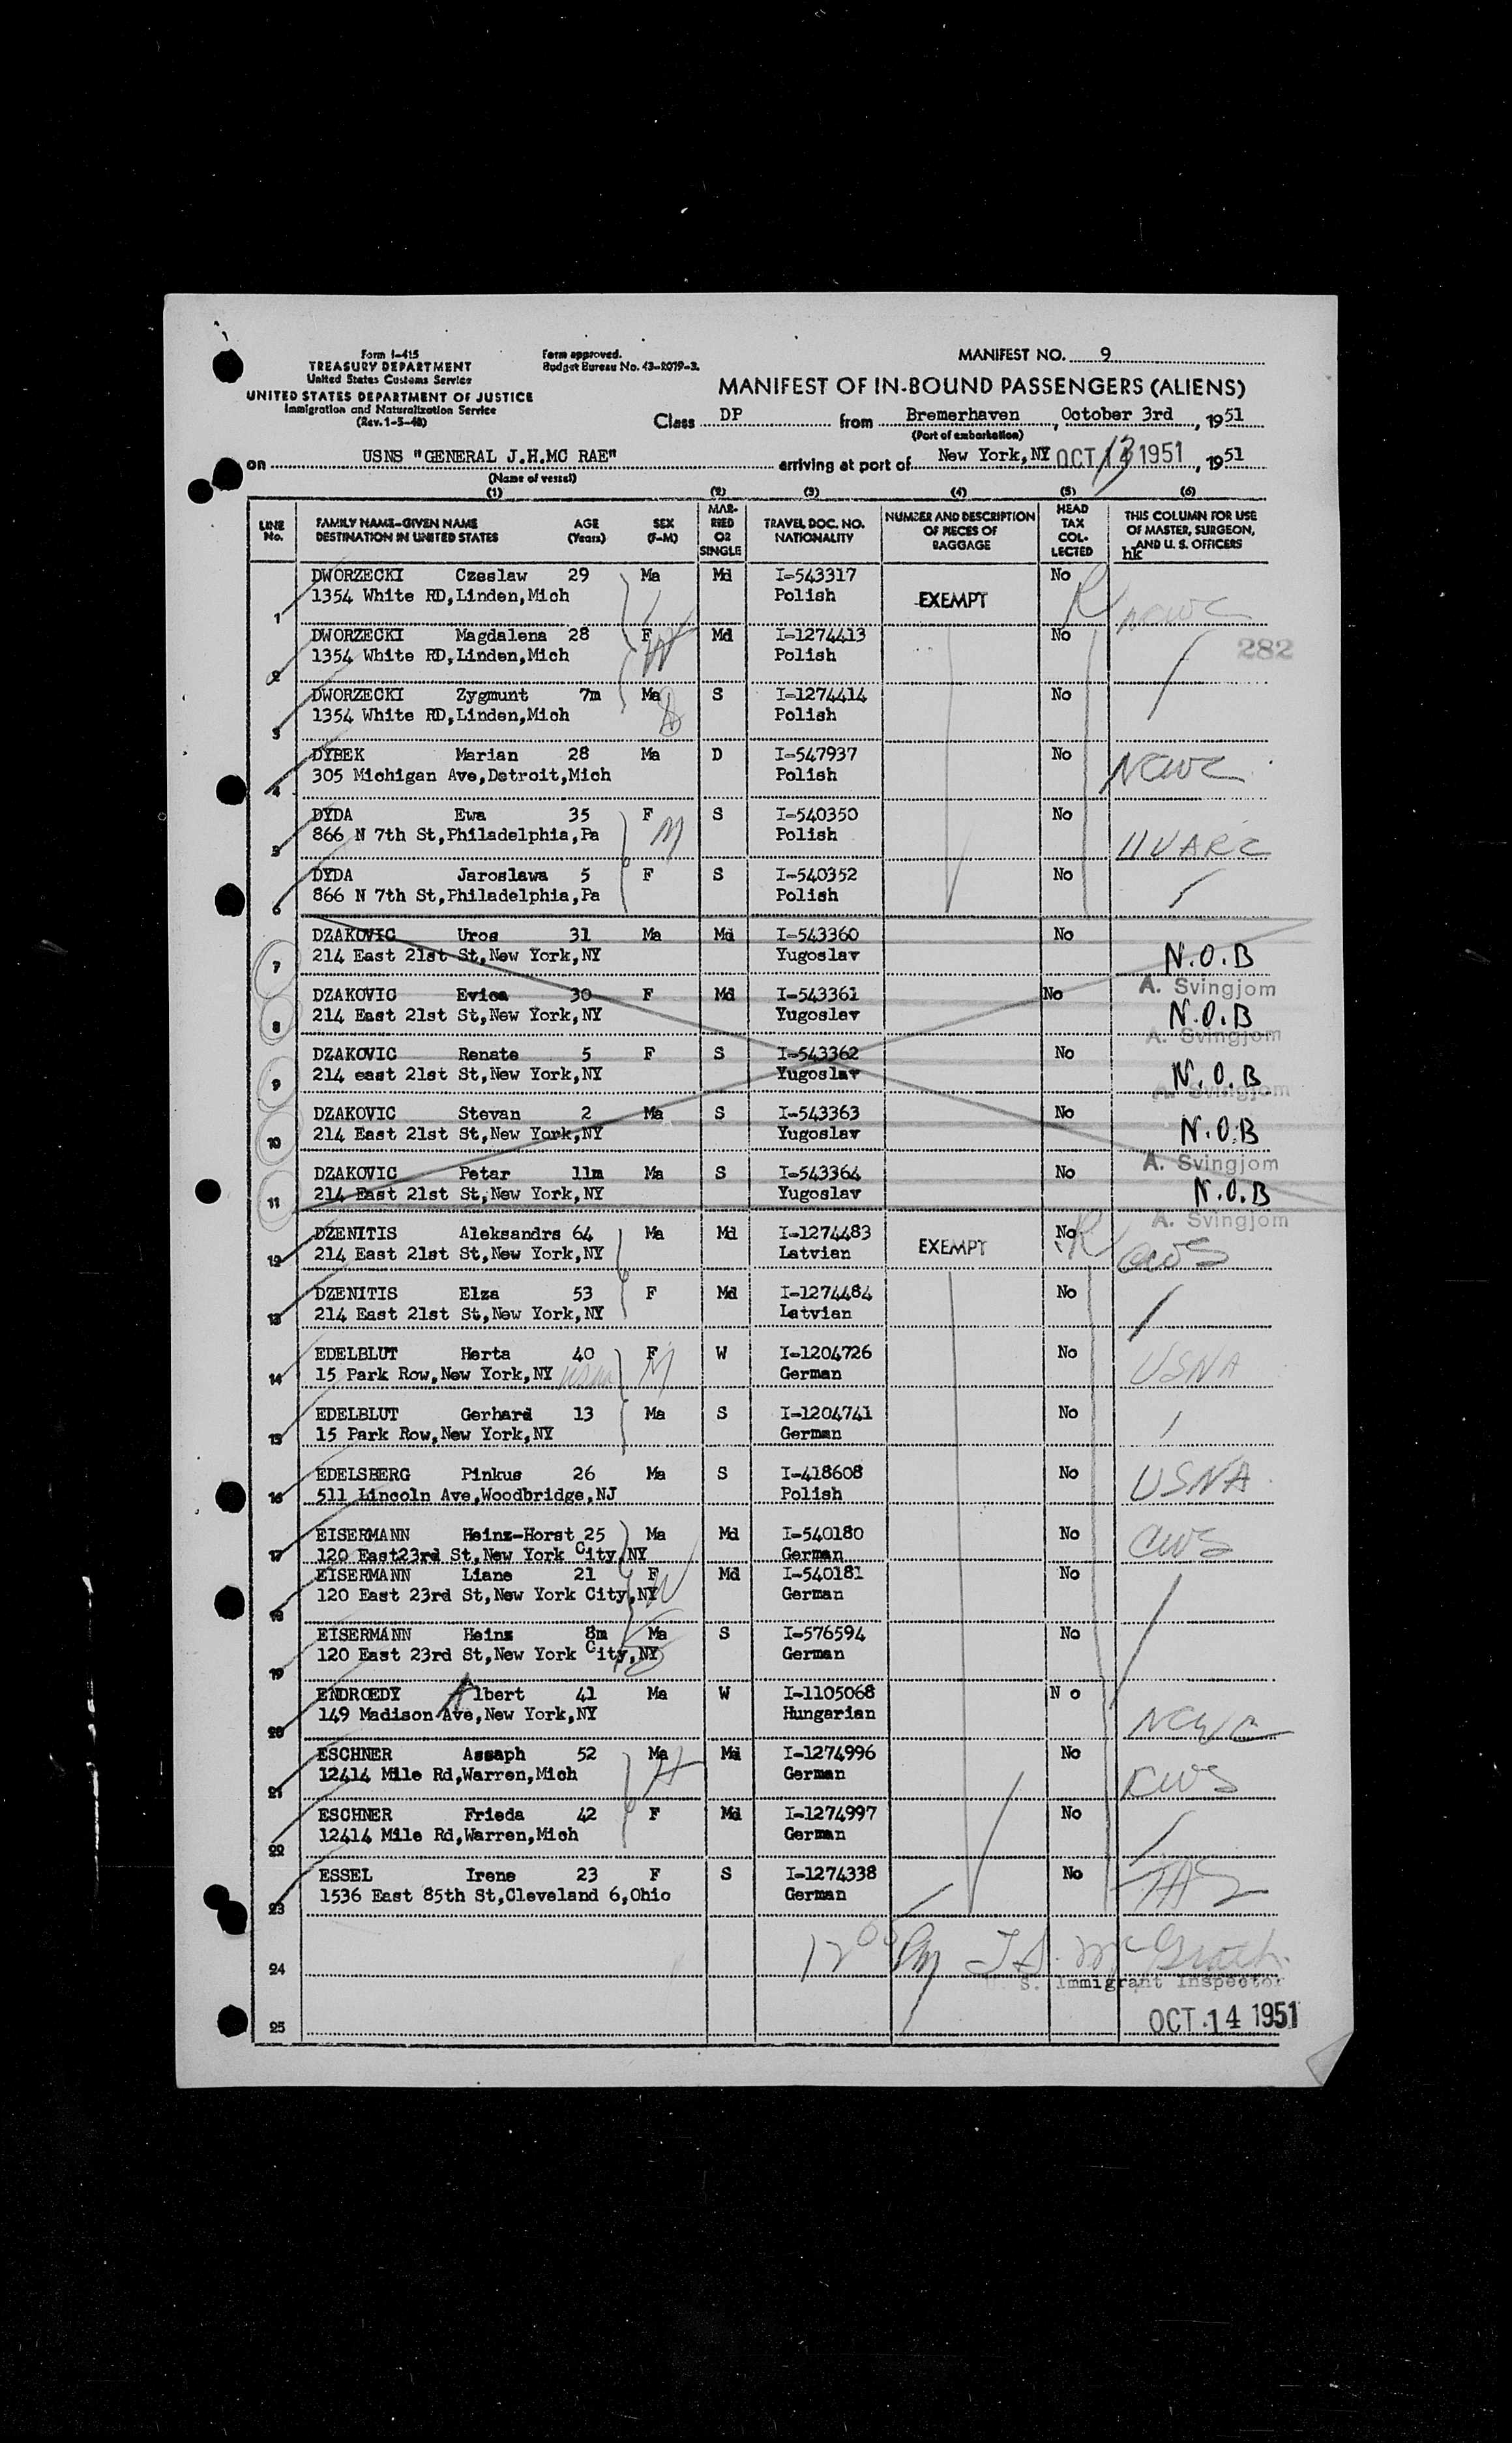 Form I-415
TREASURY DEPARTMENT
United States Customs Service
UNITED STATES DEPARTMENT OF JUSTICE
Immigration and Naturalization Service
(Rev. 1-5-48)
Form approved.
Budget Bureau No. 43-R079-3.
MANIFEST NO. 9
MANIFEST OF IN-BOUND PASSENGERS (ALIENS)
Class DP from Bremerhaven, October 3rd, 1951
(Port of embarkation)
on USNS "GENERAL J.H.MC RAE" arriving at port of New York,NY OCT 13 1951, 1951
(Name of vessel)
(1) (2) (3) (4) (5) (6)
LINE No. FAMILY NAME-GIVEN NAME DESTINATION IN UNITED STATES AGE (Years) SEX (F-M) MARRIED OR SINGLE TRAVEL DOC. NO. NATIONALITY NUMBER AND DESCRIPTION OF PIECES OF BAGGAGE HEAD TAX COL-LECTED THIS COLUMN FOR USE OF MASTER, SURGEON, AND U. S. OFFICERS
hk
DWORZECKI Czeslaw 29 Ma Md I-543317 No
1 1354 White RD,Linden,Mich Polish EXEMPT NCWC
DWORZECKI Magdalena 28 F Md I-1274413 No
282
2 1354 White RD,Linden,Mich Polish
DWORZECKI Zygmunt 7m Ma S I-1274414 No
3 1354 White RD,Linden,Mich Polish
DYBEK Marian 28 Ma D I-547937 No
4 305 Michigan Ave,Detroit,Mich Polish NCWC
DYDA Ewa 35 F S I-540350 No
5 866 N 7th St,Philadelphia,Pa Polish UUARC
DYDA Jaroslawa 5 F S I-540352 No
6 866 N 7th St,Philadelphia,Pa Polish
DZAKOVIC Uros 31 Ma Md I-543360 No
7 214 East 21st St,New York,NY Yugoslav N.O.B
A. Svingjom
DZAKOVIC Evica 30 F Md I-543361 No
8 214 East 21st St,New York,NY Yugoslav N.O.B
A. Svingjom
DZAKOVIC Renate 5 F S I-543362 No
9 214 east 21st St,New York,NY Yugoslav N.O.B
A. Svingjom
DZAKOVIC Stevan 2 Ma S I-543363 No
10 214 East 21st St,New York,NY Yugoslav N.O.B
A. Svingjom
DZAKOVIC Petar 11m Ma S I-543364 No
11 214 East 21st St,New York,NY Yugoslav N.O.B
A. Svingjom
DZENITIS Aleksandrs 64 Ma Md I-1274483 No
12 214 East 21st St,New York,NY Latvian EXEMPT CWS
DZENITIS Elza 53 F Md I-1274484 No
13 214 East 21st St,New York,NY Latvian
EDELBLUT Herta 40 F W I-1204726 No
14 15 Park Row,New York,NY German USNA
EDELBLUT Gerhard 13 Ma S I-1204741 No
15 15 Park Row,New York,NY German
EDELSBERG Pinkus 26 Ma S I-418608 No
16 511 Lincoln Ave,Woodbridge,NJ Polish USNA
EISERMANN Heinz-Horst 25 Ma Md I-540180 No
17 120 East23rd St,New York City,NY German CWS
EISERMANN Liane 21 F Md I-540181 No
18 120 East 23rd St,New York City,NY German
EISERMANN Heinz 8m Ma S I-576594 No
19 120 East 23rd St,New York City,NY German
ENDROEDY Albert 41 Ma W I-1105068 N o
20 149 Madison Ave,New York,NY Hungarian NCWC
ESCHNER Assaph 52 Ma Md I-1274996 No
21 12414 Mile Rd,Warren,Mich German CWS
ESCHNER Frieda 42 F Md I-1274997 No
22 12414 Mile Rd,Warren,Mich German
ESSEL Irene 23 F S I-1274338 No
23 1536 East 85th St,Cleveland 6,Ohio German
24 12 00 Pm McGrath
U. S. Immigrant Inspector
25 OCT 14 1951